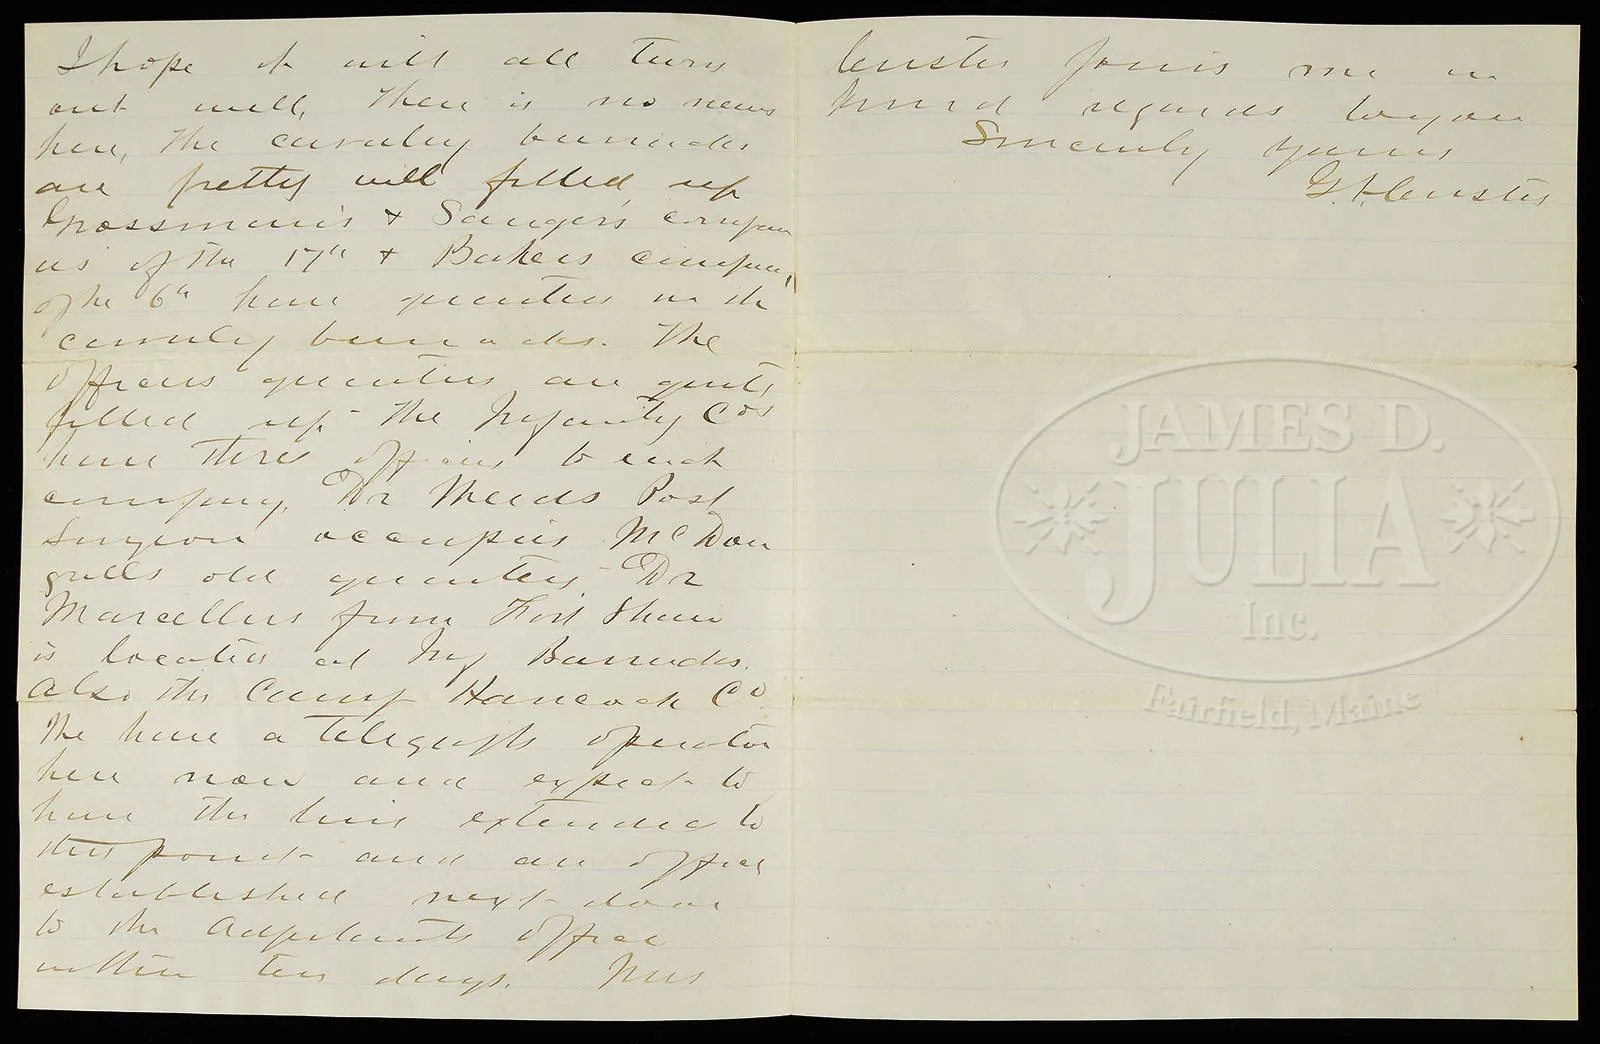 I hope it will all turn
out well, There is no news
here, The cavalry barracks
are pretty well filled up
Grossman's & Sanger's compan
ies of the 17th & Bakers company
of the 6th have quarters in the
cavalry barracks. The
officers quarters are quite
filled up - The Infantry Cos
have three officers to each
company, Dr Meads Post
Surgeon occupies McDou
galls old quarters - Dr
Marcellus from Fort Shaw
is located at Inf Barracks.
Also the Camp Hancock Co.
We have a telegraph operator
here now and expect to
have the line extended to
this point - and an office
established next door
to the Adjutants office
within ten days. Mrs
Custer joins me in
kind regards to you
Sincerely Yours
G. A. Custer
JAMES D.
JULIA
Inc.
Fairfield, Maine